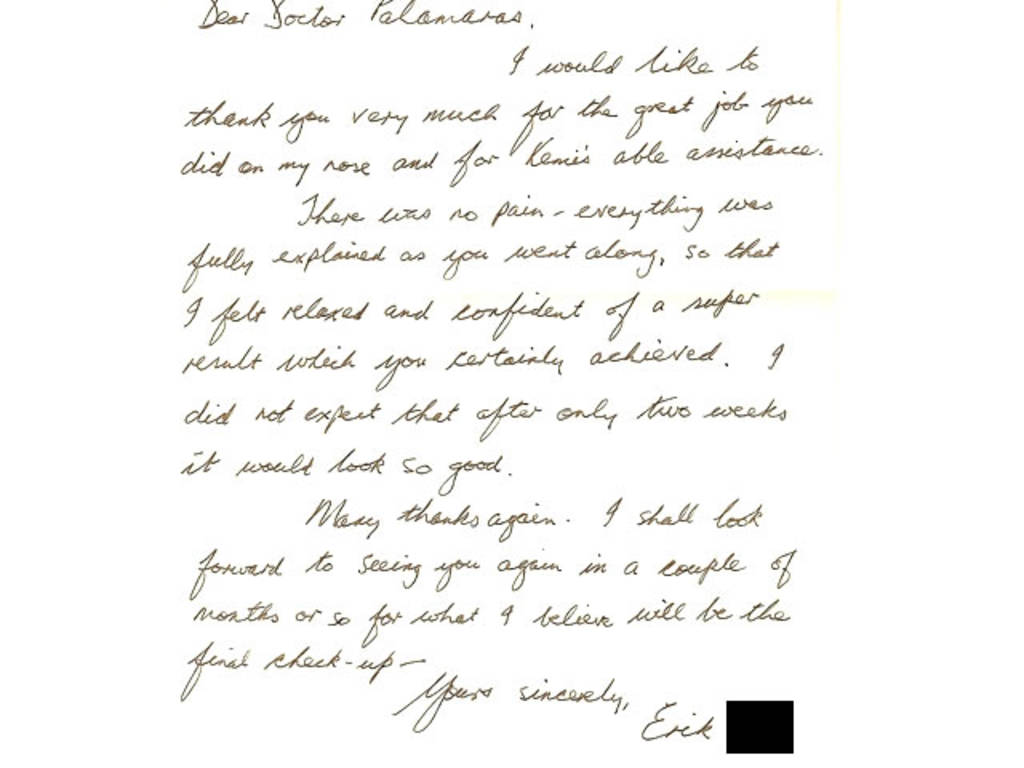 Dear Doctor Palamaras.
I would like to
thank you very much for the great job you
did on my nose and for Kemi's able assistance.
There was no pain - everything was
fully explained as you went along, so that
I felt relaxed and confident of a super
result which you certainly achieved. I
did not expect that after only two weeks
it would look so good.
Many thanks again. I shall look
forward to seeing you again in a couple of
months or so for what I believe will be the
final check-up -
Yours sincerely,
Erik